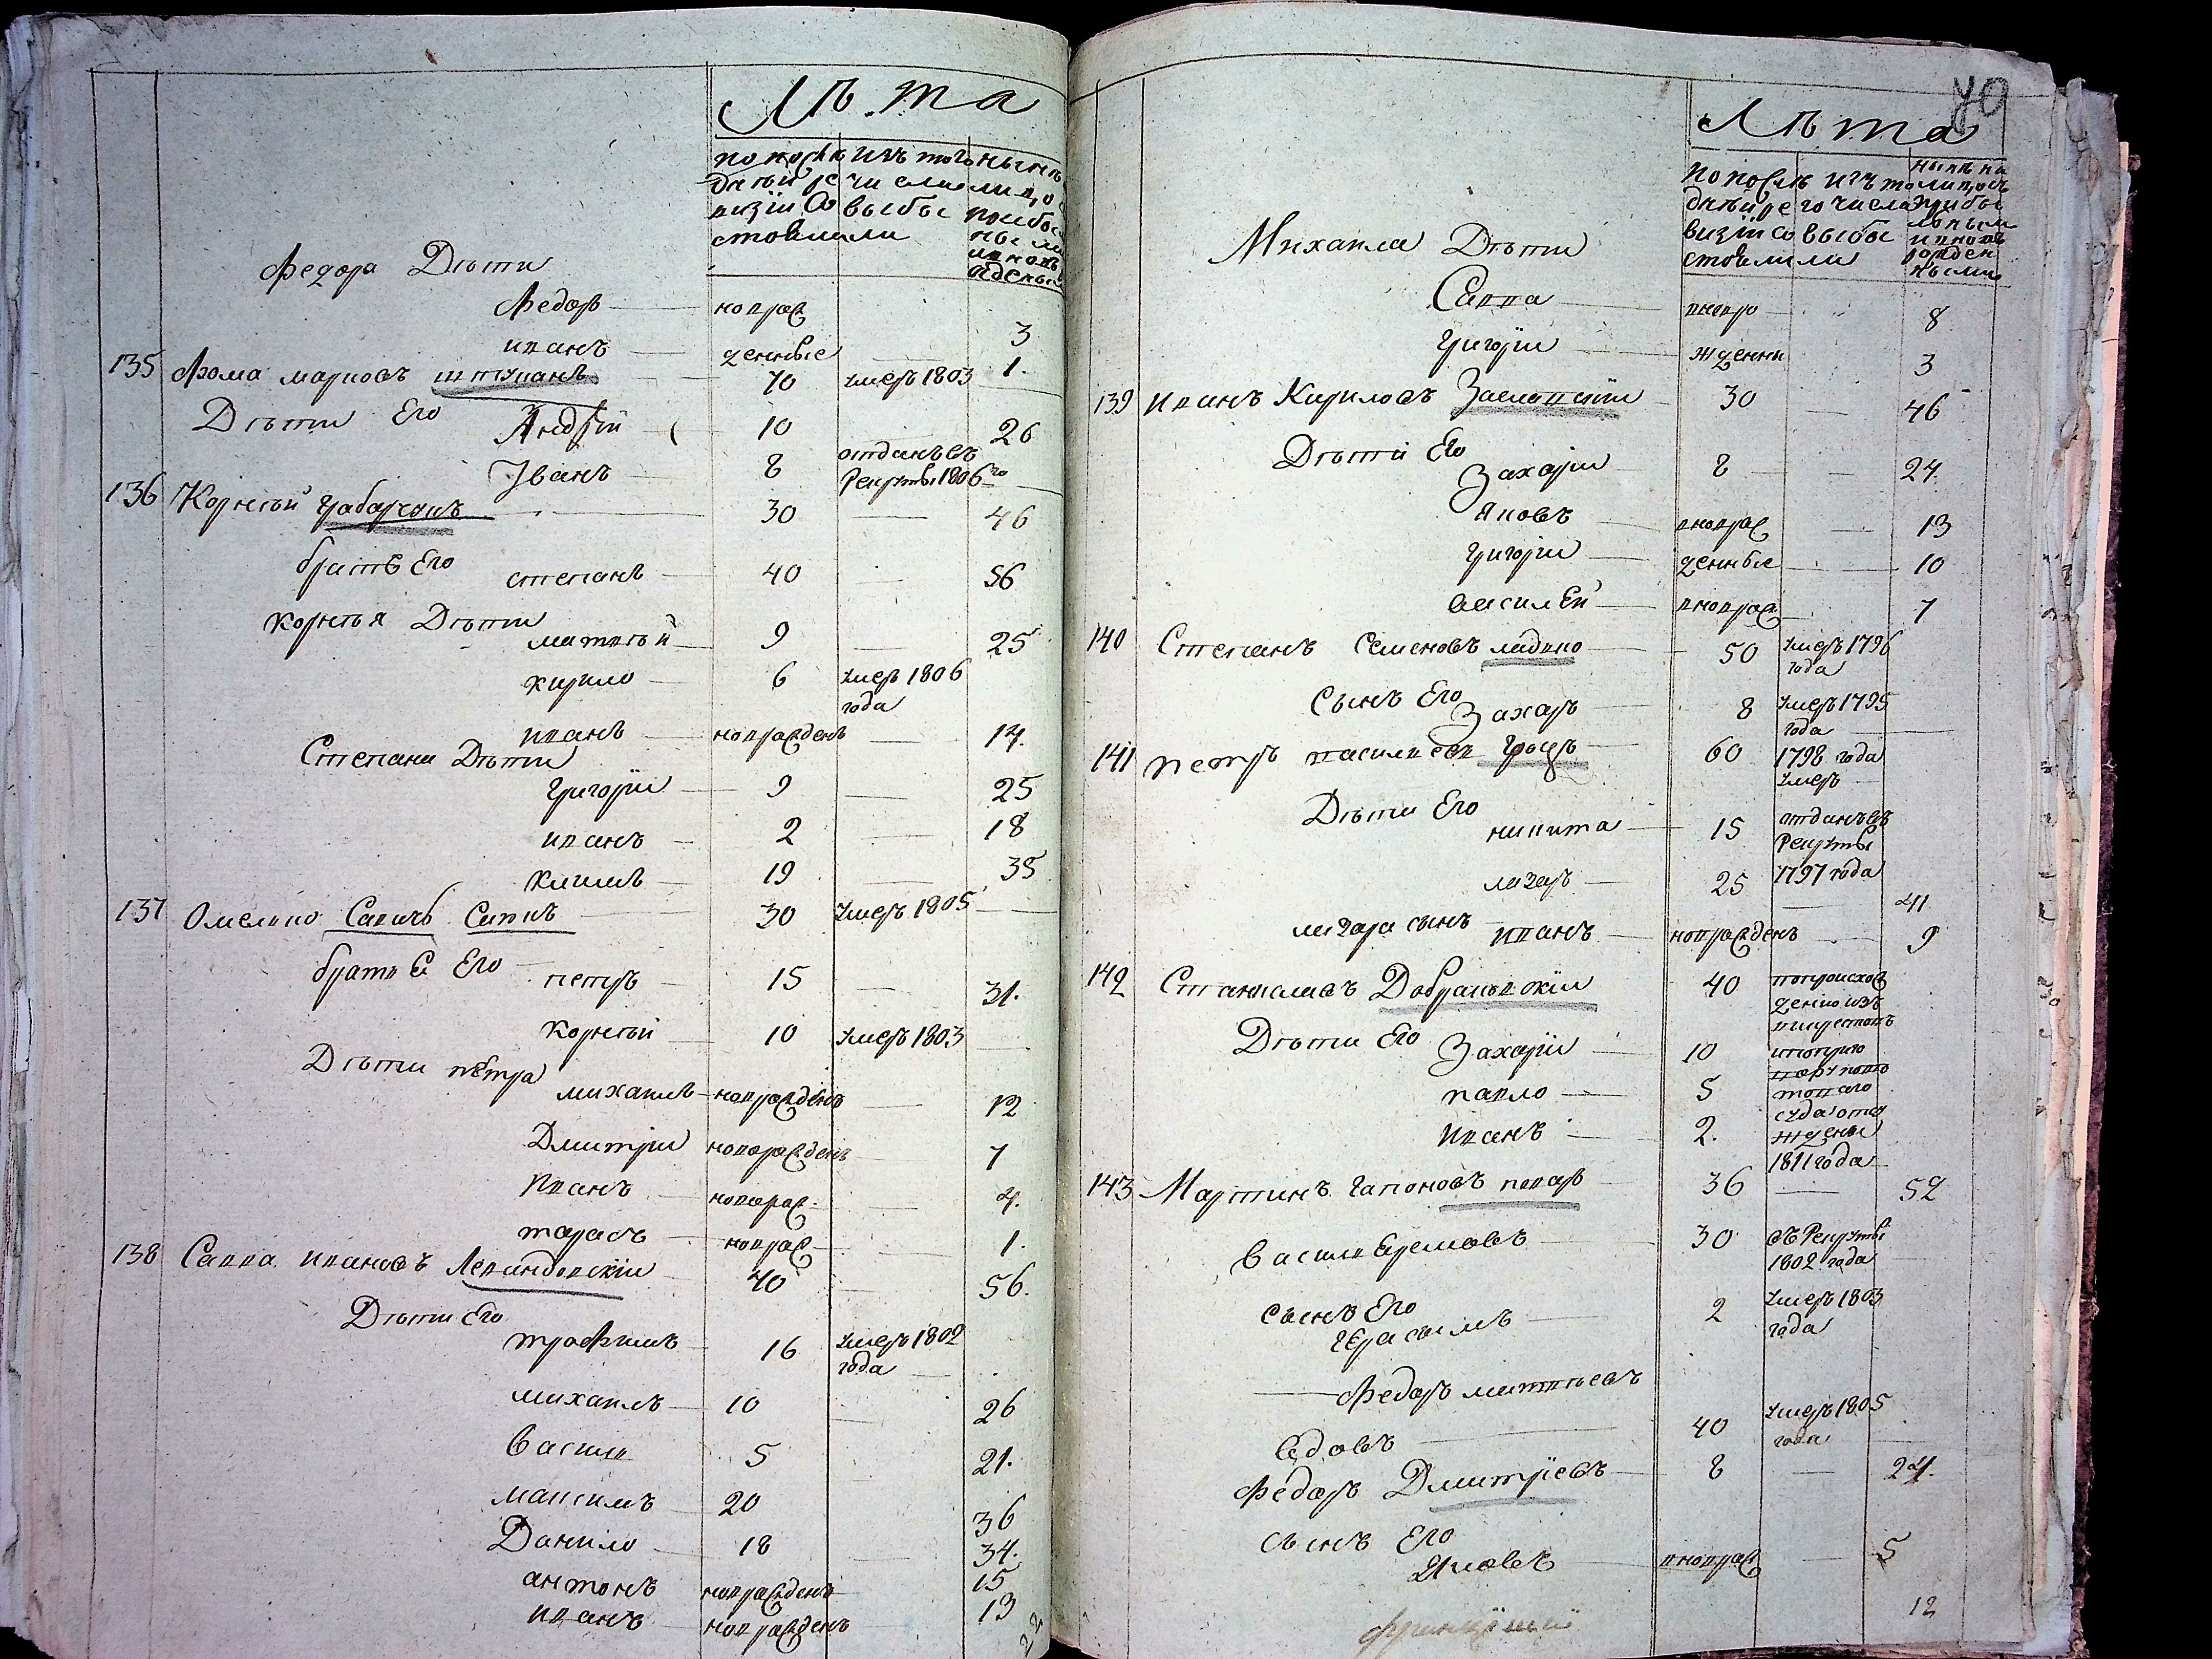 Лѣта
по послѣ дней ре визіи со стояли
изъ того числа выбы ли
Федора Дѣти
Федоръ новорож 3
иванъ денные 1.
135 Фома марковъ 70 умеръ 1803
Дѣти Его Андрій 10 26
Іванъ 8 отданъ въ Рекруты 1806го
136 Корнѣй грабарчукъ 30 46
братъ Его степанъ 40 56
корнѣя Дѣти
матвѣй 9 25
кирило 6 умеръ 1806 года
иванъ новорожденъ 14.
Степана Дѣти
Григорій 9 25
иванъ 2 18
климъ 19 35
137 Омелько Савичъ 30 умеръ 1805
братья Его петръ 15 31.
корнѣй 10 умеръ 1803
Дѣти петра
михаилъ новорожденъ 12
Дмитрій новорожденъ 7
Иванъ новорож 4.
тарасъ новорож 1.
138 Савва ивановъ 40 56.
Дѣти Его
трофимъ 16 умеръ 1802 года
михаилъ 10 26
Василь 5 21.
максимъ 20 36
Данило 18 34.
антонъ новорожденъ 15
иванъ новорожденъ 13
22
70
Лѣта
по послѣ дней ре визіи со стояли
изъ то го числа выбы ли
нынѣ на лицо съ прибы лыми и новъ рожден ными
Михаила Дѣти
Савва вновро 8
Григорій жденны 3
139 иванъ Кириловъ Заславскій 30 46
Дѣти Его
Захарій 8 24.
Яковъ вноврож 13
Григорій денные 10
василЕй вноврож 7
140 Степанъ Семеновъ ладыко 50 умеръ 1796 года
Сынъ Его
Захаръ 8 умеръ 1795 года
141 петръ васильевъ 60 1798 года умеръ
Дѣти Его
никита 15 отданъ въ Рекруты 1797 года
лазаръ 25 41
лазара сынъ иванъ новорожденъ 9
142 Станиславъ Добраньскій 40
Дѣти Его
Захарій 10
павло 5
Иванъ 2.
по происхож дению изъ
суда отсу ждены 1811 года
143 Мартинъ гапоновъ 36 52
василь Еремовъ 30 въ Рекруты 1802 года
сынъ Его
гЕрасымъ 2 умеръ 1803 года
Федоръ матвѣевъ
40 умеръ 1805 года
Федоръ Дмитріевъ 8 24.
сынъ Его
Яковъ вноврож 5
12